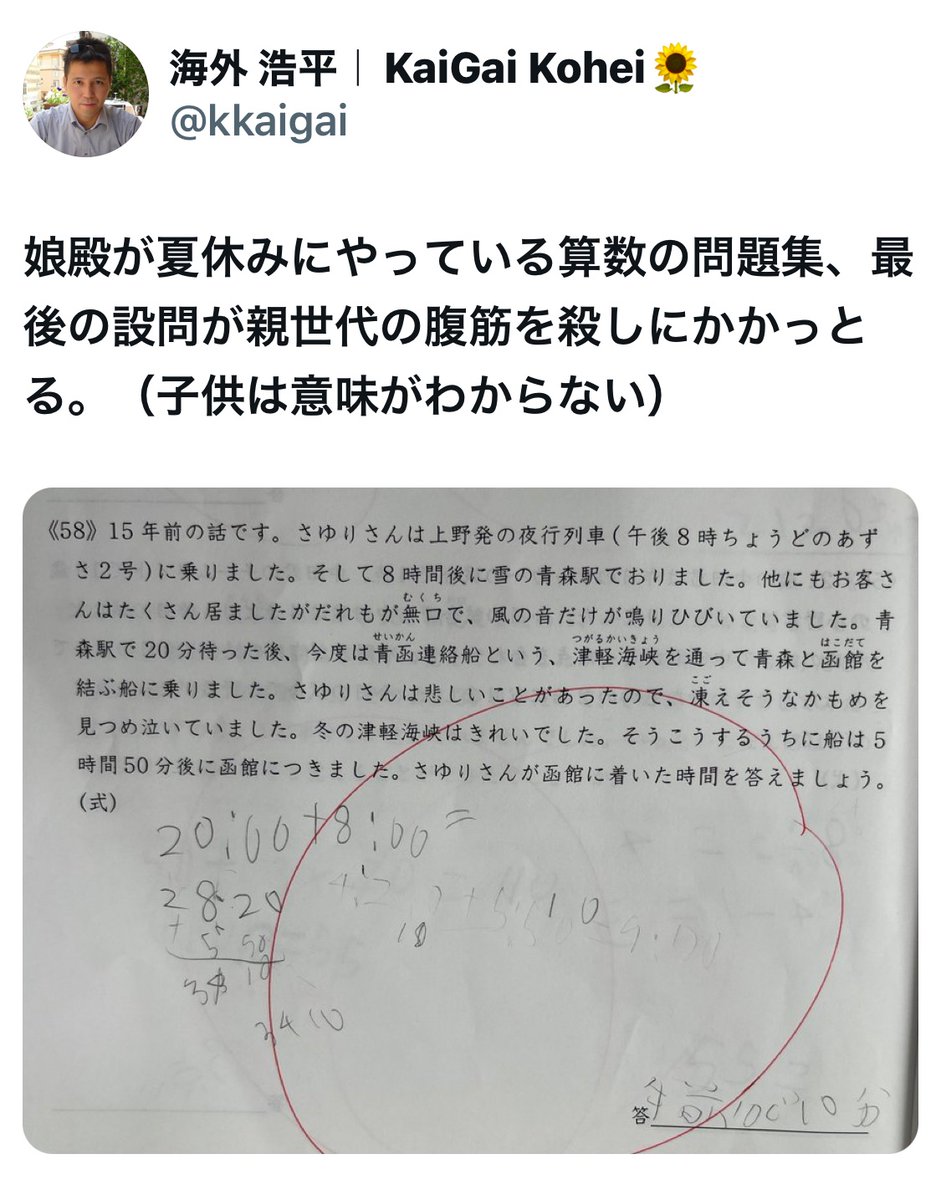 海外 浩平｜KaiGai Kohei🌻
@kkaigai
娘殿が夏休みにやっている算数の問題集、最
後の設問が親世代の腹筋を殺しにかかっと
る。（子供は意味がわからない）
《58》15年前の話です。さゆりさんは上野発の夜行列車(午後8時ちょうどのあず
さ2号)に乗りました。そして8時間後に雪の青森駅でおりました。他にもお客さ
むくち
んはたくさん居ましたがだれもが無口で、風の音だけが鳴りひびいていました。青
せいかん つがるかいきょう はこだて
森駅で20分待った後、今度は青函連絡船という、津軽海峡を通って青森と函館を
こご
結ぶ船に乗りました。さゆりさんは悲しいことがあったので、凍えそうなかもめを
見つめ泣いていました。冬の津軽海峡はきれいでした。そうこうするうちに船は5
時間50分後に函館につきました。さゆりさんが函館に着いた時間を答えましょう。
(式)
20:00+8:00=
28:20
+5 50
10
34 10
答 午前10じ10分